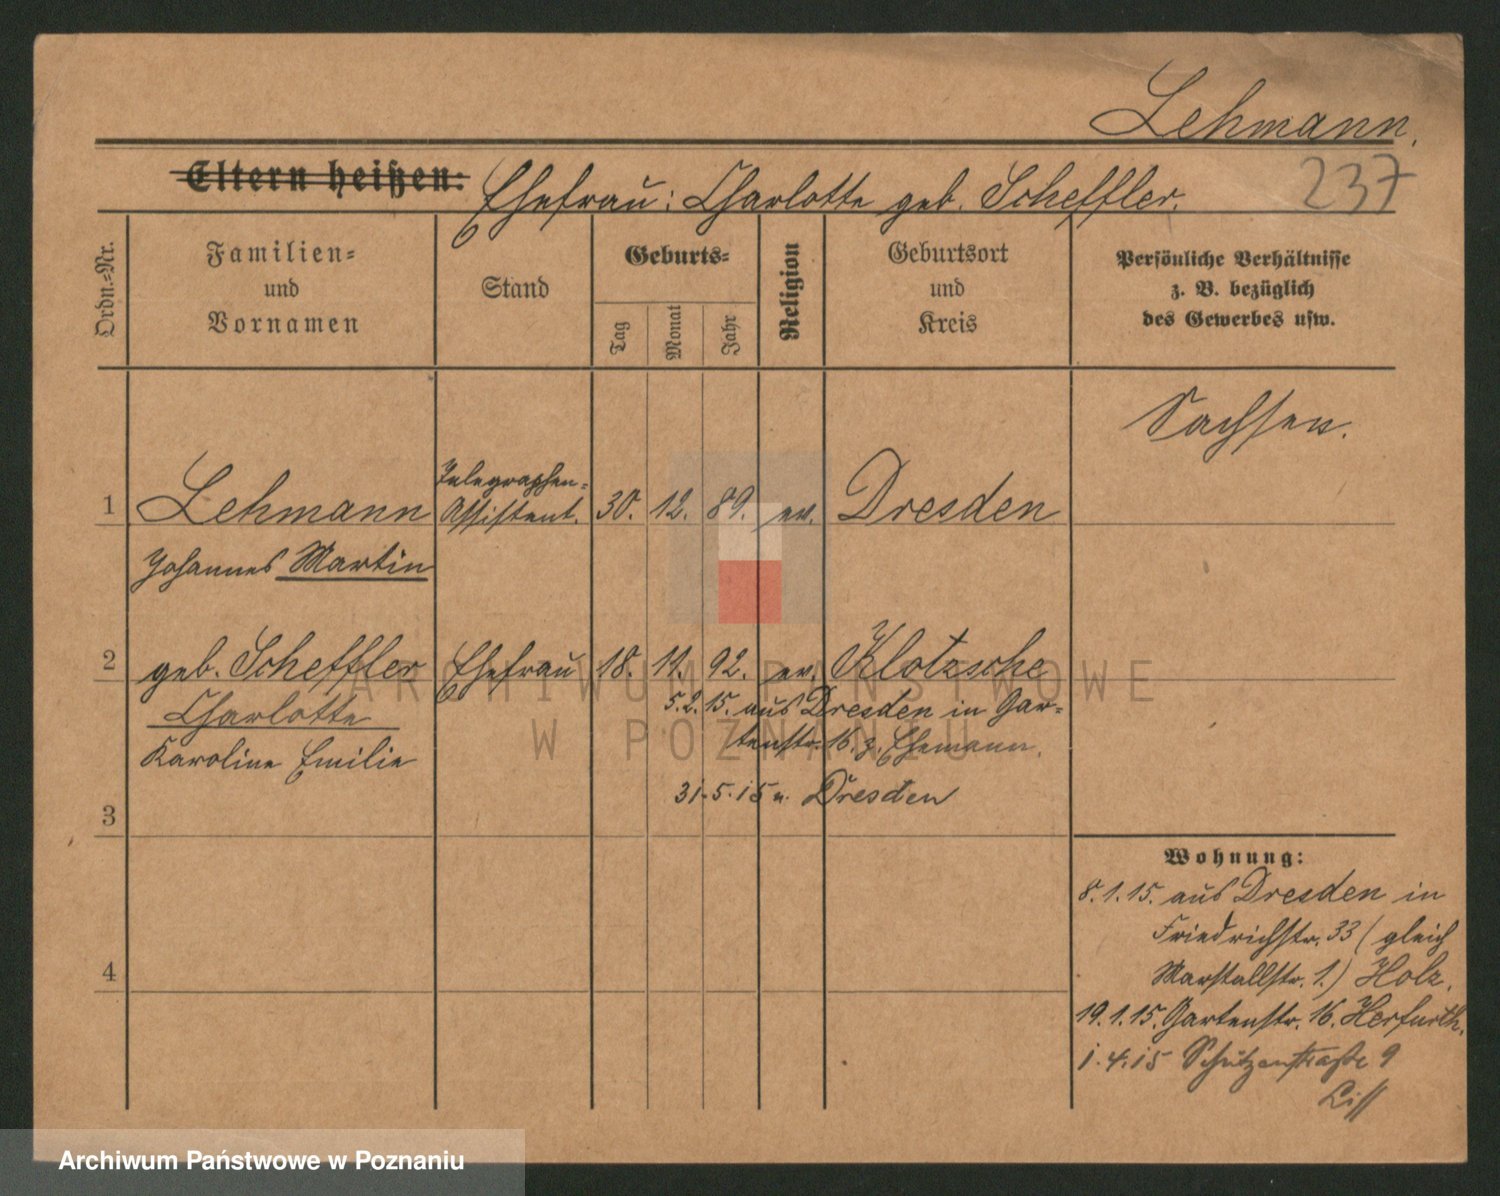 Lehmann.
237
Eltern heißen:
Ehefrau: Charlotte geb. Scheffler.
Ordn.-Nr.
Familien-
und
Vornamen
Stand
Geburts-
Tag
Monat
Jahr
Religion
Geburtsort
und
Kreis
Persönliche Verhältnisse
z. B. bezüglich
des Gewerbes usw.
Sachsen.
1 Lehmann Telegraphen-
Assistent. 30. 12. 89. ev. Dresden
Johannes Martin
2 geb. Scheffler Ehefrau 18. 11. 92. ev. Klotzsche
Charlotte
Karoline Emilie
5.2.15. aus Dresden in Gar-
tenstr. 16. z. Ehemann.
31.5.15 n. Dresden
3
4
Wohnung:
8.1.15. aus Dresden in
Friedrichstr. 33 (gleich
Marstallstr. 1.) Holz.
19.1.15. Gartenstr. 16. Herfurth.
1.4.15 Schützenstraße 9
ARCHIWUM PAŃSTWOWE
W POZNANIU
Archiwum Państwowe w Poznaniu